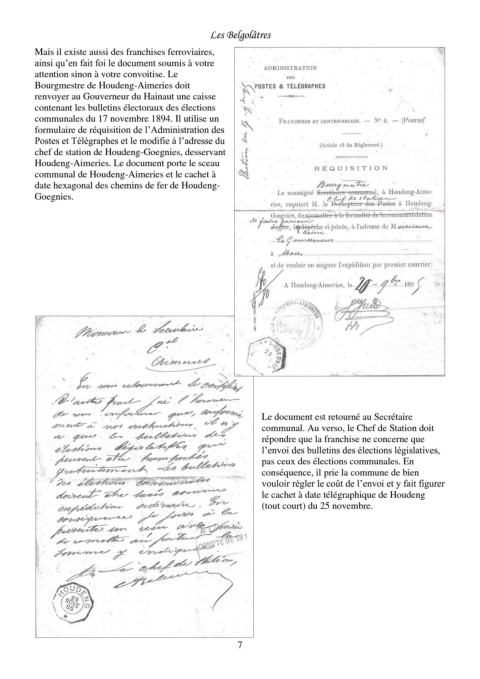 Les Belgolâtres
Mais il existe aussi des franchises ferroviaires,
ainsi qu'en fait foi le document soumis à votre
attention sinon à votre convoitise. Le
Bourgmestre de Houdeng-Aimeries doit
renvoyer au Gouverneur du Hainaut une caisse
contenant les bulletins électoraux des élections
communales du 17 novembre 1894. Il utilise un
formulaire de réquisition de l'Administration des
Postes et Télégraphes et le modifie à l'adresse du
chef de station de Houdeng-Goegnies, desservant
Houdeng-Aimeries. Le document porte le sceau
communal de Houdeng-Aimeries et le cachet à
date hexagonal des chemins de fer de Houdeng-
Goegnies.
ADMINISTRATION
DES
POSTES & TÉLÉGRAPHES
FRANCHISES ET CONTRE-SEINGS. — N° 4. — (Postes)
(Article 18 du Règlement.)
RÉQUISITION
Bourgmestre
Le soussigné Secrétaire communal, à Houdeng-Aime-
Chef de Station
ries, requiert M. le Percepteur des Postes à Houdeng-
Goegnies, de soumettre à la formalité de la recommandation
de faire parvenir
la dépêche ci-jointe, à l'adresse de Monsieur
caisse
le Gouverneur
à Mons
et de vouloir en soigner l'expédition par premier courrier.
A Houdeng-Aimeries, le 20 - 9bre 1895
Monsieur le Secrétaire
Cal
Aimeries
En vous retournant le certificat
D'autre part j'ai l'honneur
de vous informer que, conformé
ment à nos instructions, il n'y
a que les bulletins des
élections législatives qui
peuvent être transportés
gratuitement. Les bulletins
des élections communales
doivent être taxés comme
expédition ordinaire. En
conséquence je joins à la
présente un reçu
de remettre au porteur la
somme y indiquée
Le chef de Station,
HOUDENG
25
NOV
95
Le document est retourné au Secrétaire
communal. Au verso, le Chef de Station doit
répondre que la franchise ne concerne que
l'envoi des bulletins des élections législatives,
pas ceux des élections communales. En
conséquence, il prie la commune de bien
vouloir régler le coût de l'envoi et y fait figurer
le cachet à date télégraphique de Houdeng
(tout court) du 25 novembre.
7